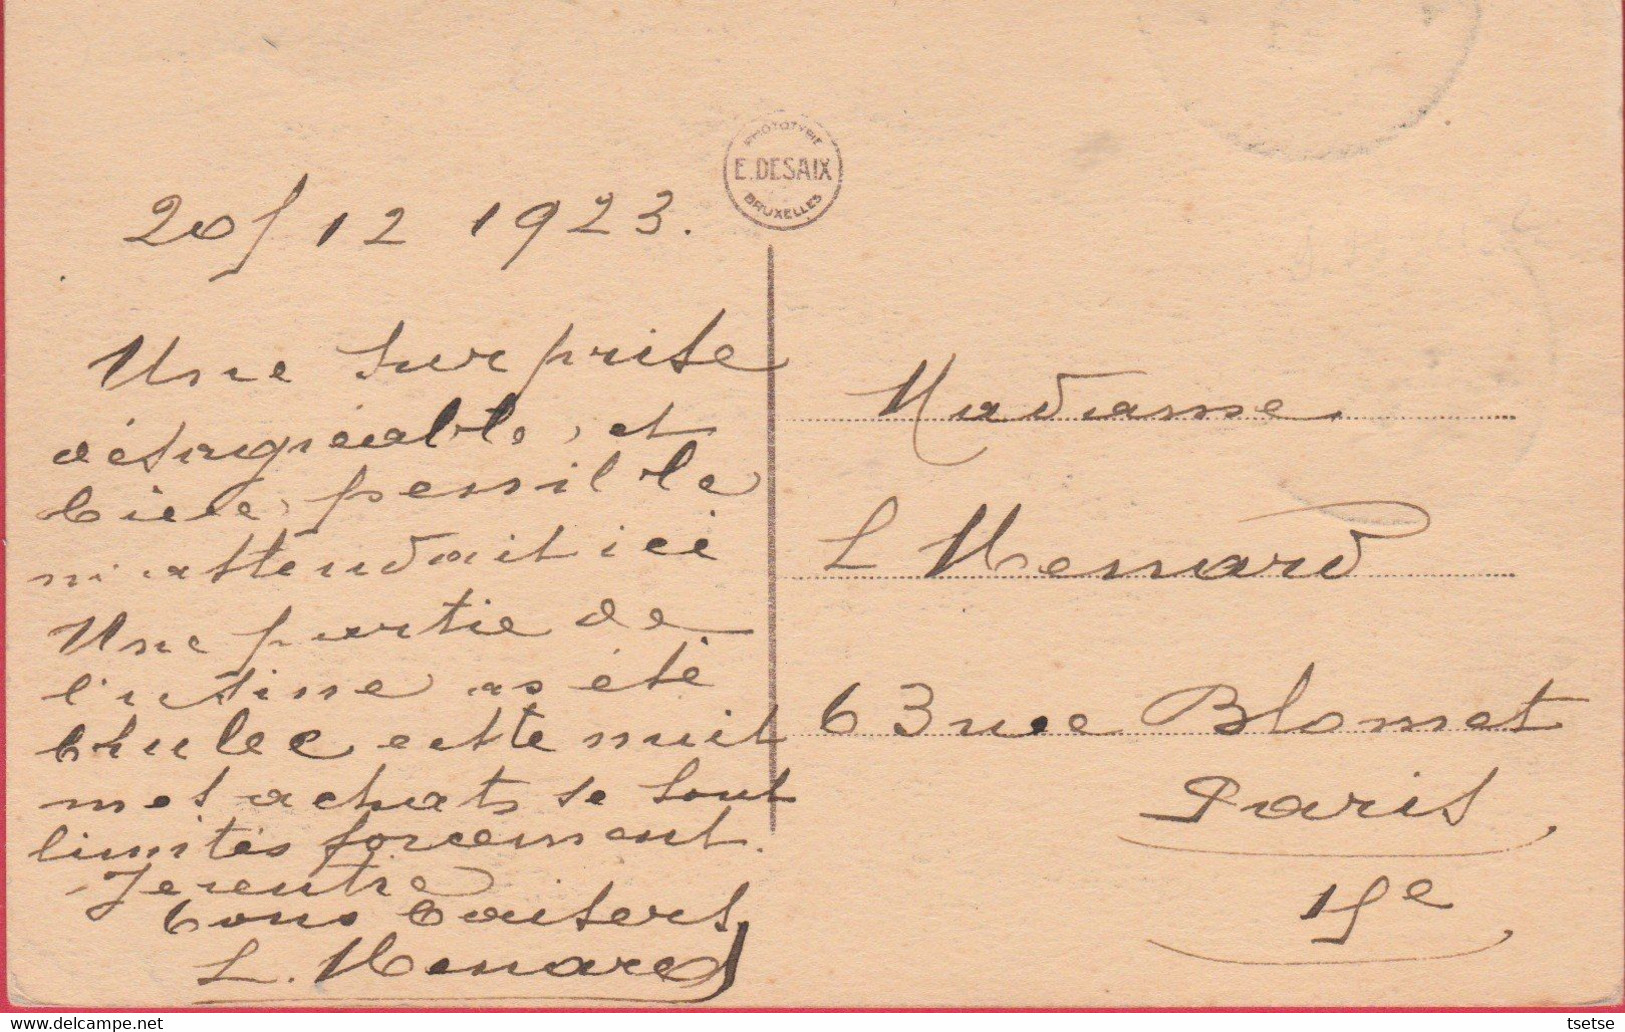 PHOTOTYPIE
E. DESAIX
BRUXELLES
20/12 1923.
Une surprise
désagréable, et
bien pénible
m'attendait ici
Une partie de
l'usine as été
brulée cette nuit
mes achats se sont
limités forcement.
Je rentre
bons baisers
L. Menard
Madame
L Menard
63 rue Blomet
Paris
15e
tsetse